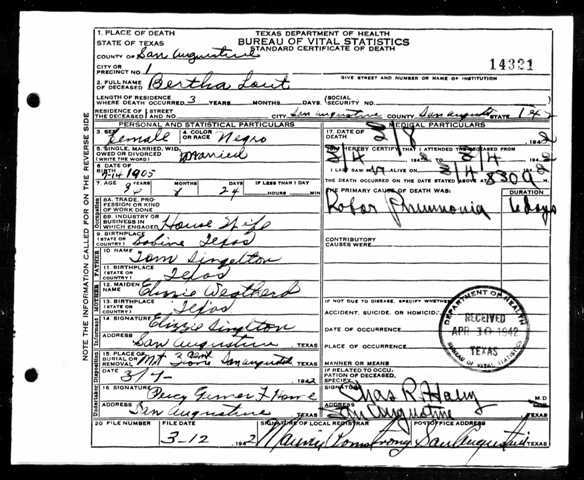 TEXAS DEPARTMENT OF HEALTH
BUREAU OF VITAL STATISTICS
STANDARD CERTIFICATE OF DEATH
1. PLACE OF DEATH
STATE OF TEXAS
COUNTY OF San Augustine
14321
CITY OR PRECINCT NO. 1
GIVE STREET AND NUMBER OR NAME OF INSTITUTION
2. FULL NAME OF DECEASED Bertha Lout
LENGTH OF RESIDENCE WHERE DEATH OCCURRED 3 YEARS MONTHS DAYS (SOCIAL SECURITY NO.
RESIDENCE OF THE DECEASED STREET AND NO. CITY San Augustine COUNTY San August STATE
PERSONAL AND STATISTICAL PARTICULARS
MEDICAL PARTICULARS
3. SEX Female 4. COLOR OR RACE Negro
17. DATE OF DEATH
5. SINGLE, MARRIED, WIDOWED OR DIVORCED (WRITE THE WORD) Married
HEREBY CERTIFY THAT I ATTENDED THE DECEASED FROM
I LAST SAW ALIVE ON
6. DATE OF BIRTH 1905
THE DEATH OCCURRED ON THE DATE STATED ABOVE AT 830 a
7. AGE 8 24 IF LESS THAN 1 DAY HOURS MIN.
THE PRIMARY CAUSE OF DEATH WAS: DURATION
Lobar Pneumonia 6 days
8A. TRADE, PROFESSION OR KIND OF WORK DONE
8B. INDUSTRY OR BUSINESS IN WHICH ENGAGED House Wife
9. BIRTHPLACE (STATE OR COUNTRY) Sabine Texas
CONTRIBUTORY CAUSES WERE:
10. NAME Tom Singelton
11. BIRTHPLACE (STATE OR COUNTRY) Texas
12. MAIDEN NAME
13. BIRTHPLACE (STATE OR COUNTRY) Texas
IF NOT DUE TO DISEASE, SPECIFY WHETHER:
ACCIDENT, SUICIDE, OR HOMICIDE
14. SIGNATURE Singelton
DATE OF OCCURRENCE
ADDRESS San Augustine TEXAS
PLACE OF OCCURRENCE
15. PLACE OF BURIAL OR REMOVAL San august TEXAS
MANNER OR MEANS
DATE 1942
IF RELATED TO OCCUPATION OF DECEASED, SPECIFY
16. SIGNATURE Percy
Chas R Haley M.D.
ADDRESS San Augustine TEXAS
ADDRESS San Augustine TEXAS
20. FILE NUMBER FILE DATE SIGNATURE OF LOCAL REGISTRAR POST OFFICE ADDRESS
3-12 1942 Armstrong San Augustine TEXAS
DEPARTMENT OF HEALTH
RECEIVED
APR 10 1942
TEXAS
BUREAU OF VITAL STATISTICS
NOTE THE INFORMATION CALLED FOR ON THE REVERSE SIDE
Occupation
FATHER
MOTHER
Informant
Disposition
Undertaker